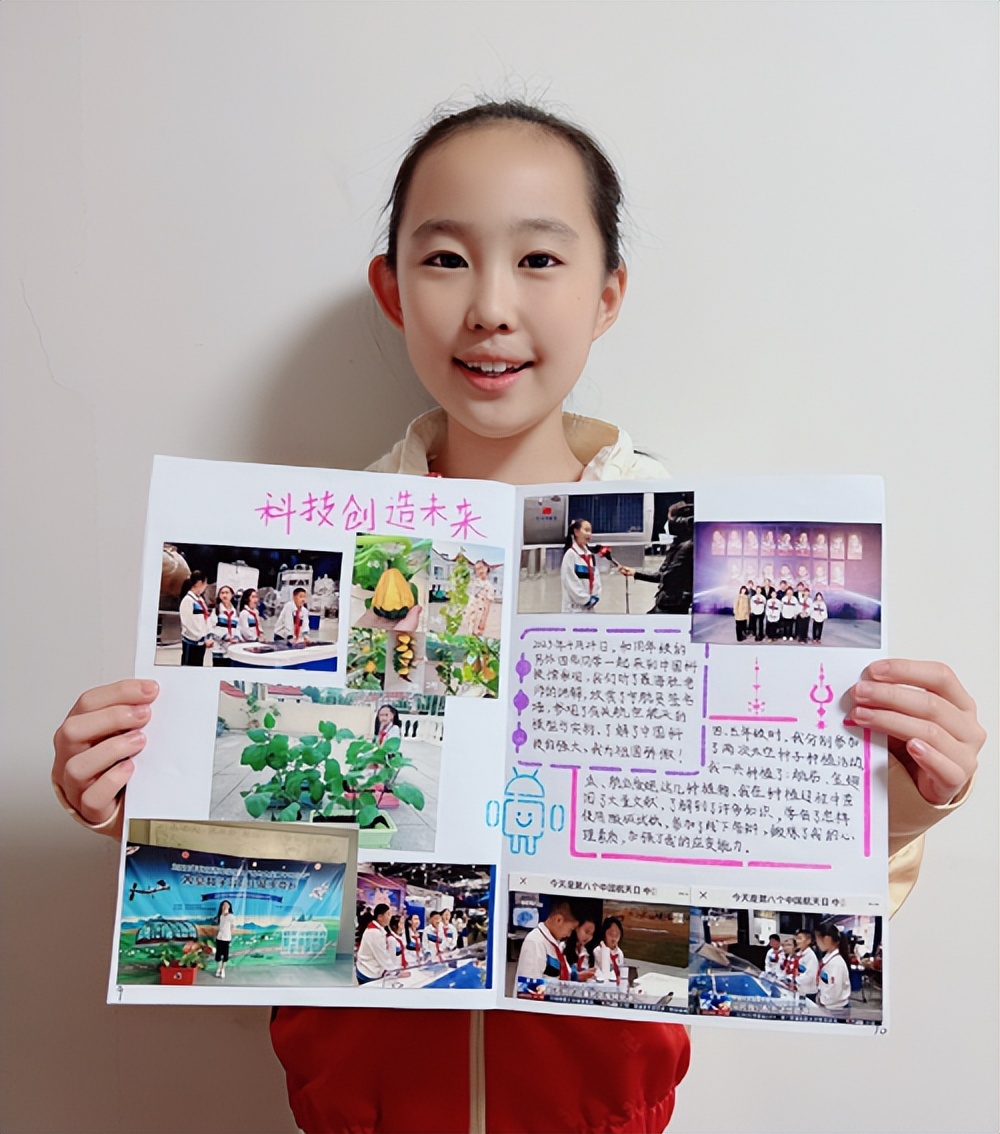 科技创造未来
2023年4月24日，和同年级的
另外四名同学一起来到中国科
技馆参观，我们听了聂海胜老
师的讲解，欣赏了宇航员签名
墙，参观了有关航空航天的
模型与实物，了解了中国科
技的强大，我为祖国骄傲！
四、五年级时，我分别参加
了两次太空种子种植活动，
我一共种植了：
这几种植物。我在种植过程中查
阅了大量文献，了解到了许多知识，学会了怎样
使用微观试纸，参加了线下答辩，锻炼了我的心
理素质，加强了我的应变能力。
今天是第八个中国航天日 中
今天是第八个中国航天日 中
9
10